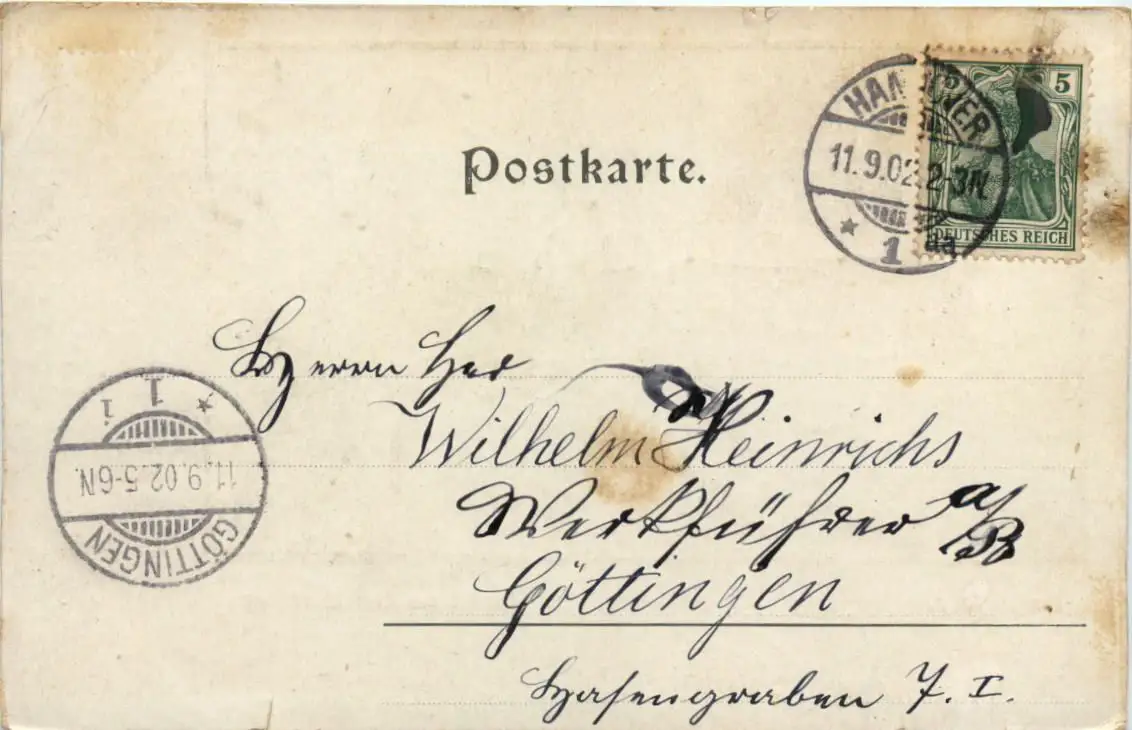 Postkarte.
HANNOVER
11.9.02. 2-3N.
* 1
5
DEUTSCHES REICH
Herrn
Wilhelm Heinrichs
Werkführer a/B
Göttingen
Hasengraben 7. I.
* 1 i
11.9.02. 5-6N.
GÖTTINGEN